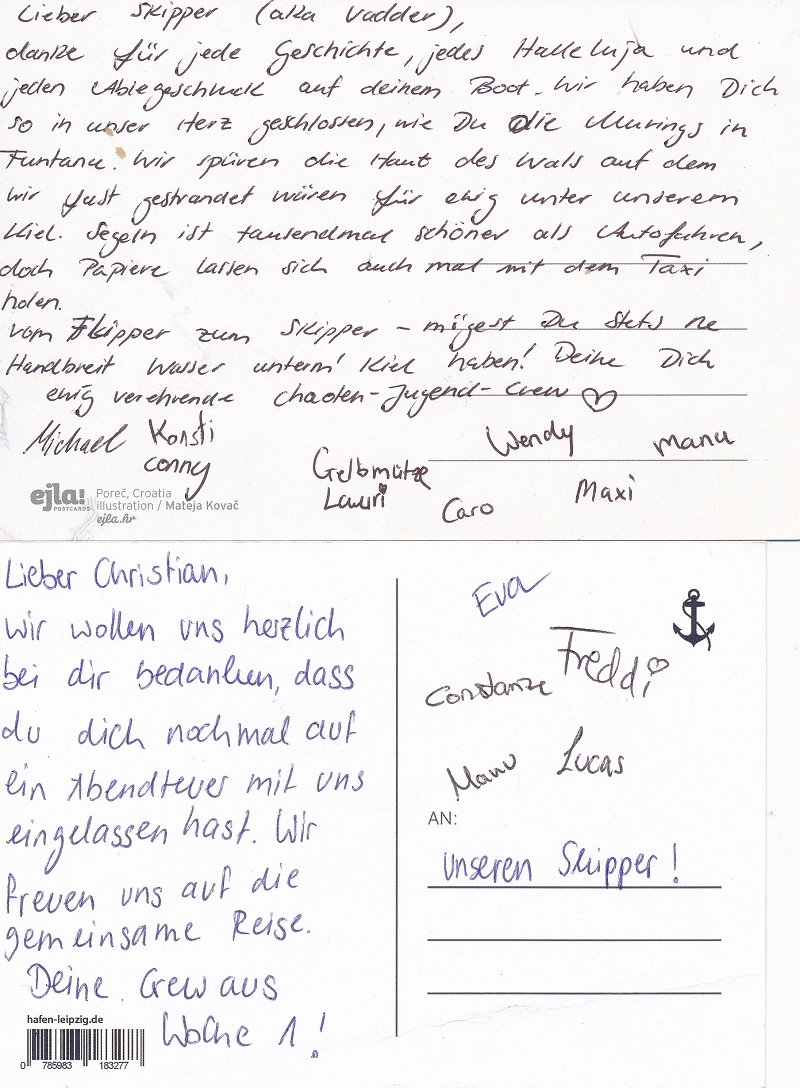 Lieber Skipper (aka Vadder),
danke für jede Geschichte, jedes Halleluja und
jeden Ablegeschmuck auf deinem Boot. Wir haben Dich
so in unser Herz geschlossen, wie Du die Murings in
Funtana. Wir spüren die Haut des Wals auf dem
wir fast gestrandet wären für ewig unter unserem
Kiel. Segeln ist tausendmal schöner als Autofahren,
doch Papiere lassen sich auch mal mit dem Taxi
holen.
vom Skipper zum Skipper – mögest Du stets ne
Handbreit Wasser unterm' Kiel haben! Deine Dich
ewig verehrende Chaoten-Jugend-Crew ♡
Michael Konsti Wendy Manu
Conny Gelbmütze
Lauri Caro Maxi
ejla!
POSTCARDS
Poreč, Croatia
illustration / Mateja Kovač
ejla.hr
Lieber Christian,
wir wollen uns herzlich
bei dir bedanken, dass
du dich nochmal auf
ein Abendteuer mit uns
eingelassen hast. Wir
freuen uns auf die
gemeinsame Reise.
Deine Crew aus
Woche 1!
hafen-leipzig.de
0 785983 183277
Eva
Freddi
Constanze
Manu Lucas
AN:
unseren Skipper!